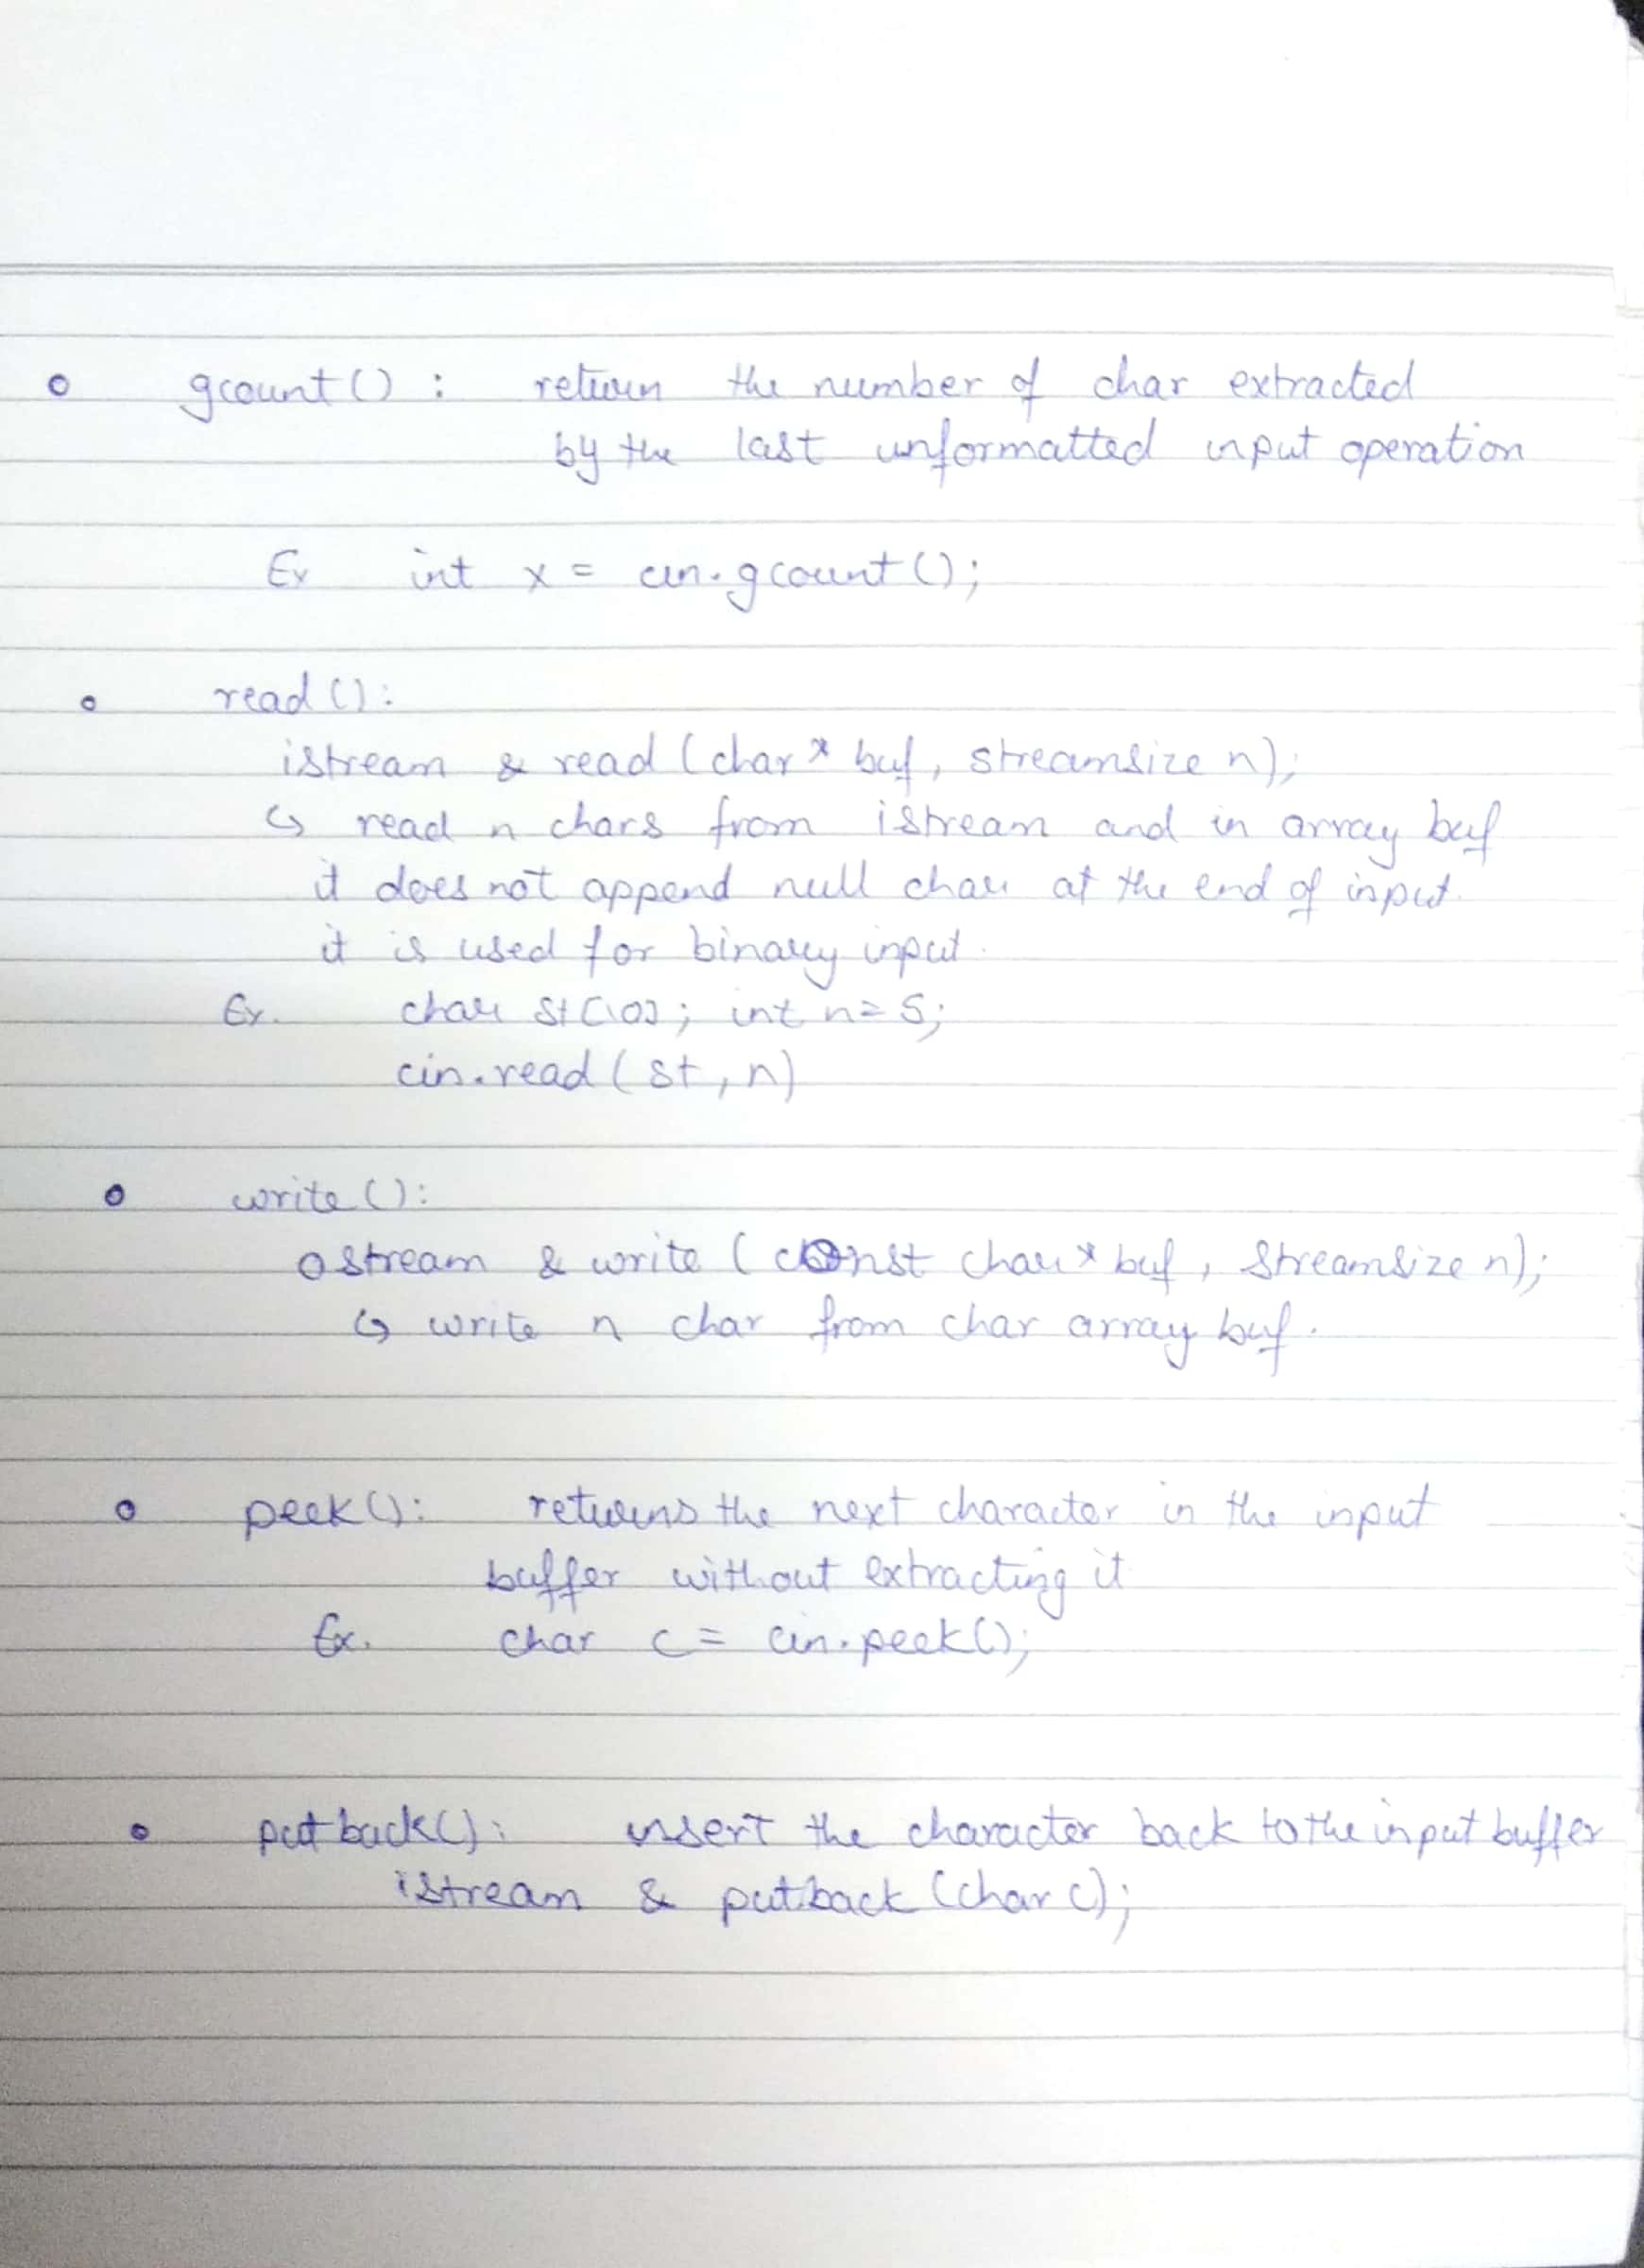 o gcount() : return the number of char extracted
by the last unformatted input operation
Ex int x = cin.gcount();
o read():
istream & read (char* buf, streamsize n);
↳ read n chars from istream and in array buf
it does not append null char at the end of input.
it is used for binary input.
Ex. char st[10]; int n=5;
cin.read(st, n)
o write():
ostream & write (const char* buf, Streamsize n);
↳ write n char from char array buf.
o peek(): returns the next character in the input
buffer without extracting it
Ex. char c = cin.peek();
o putback(): insert the character back to the input buffer
istream & putback (char c);